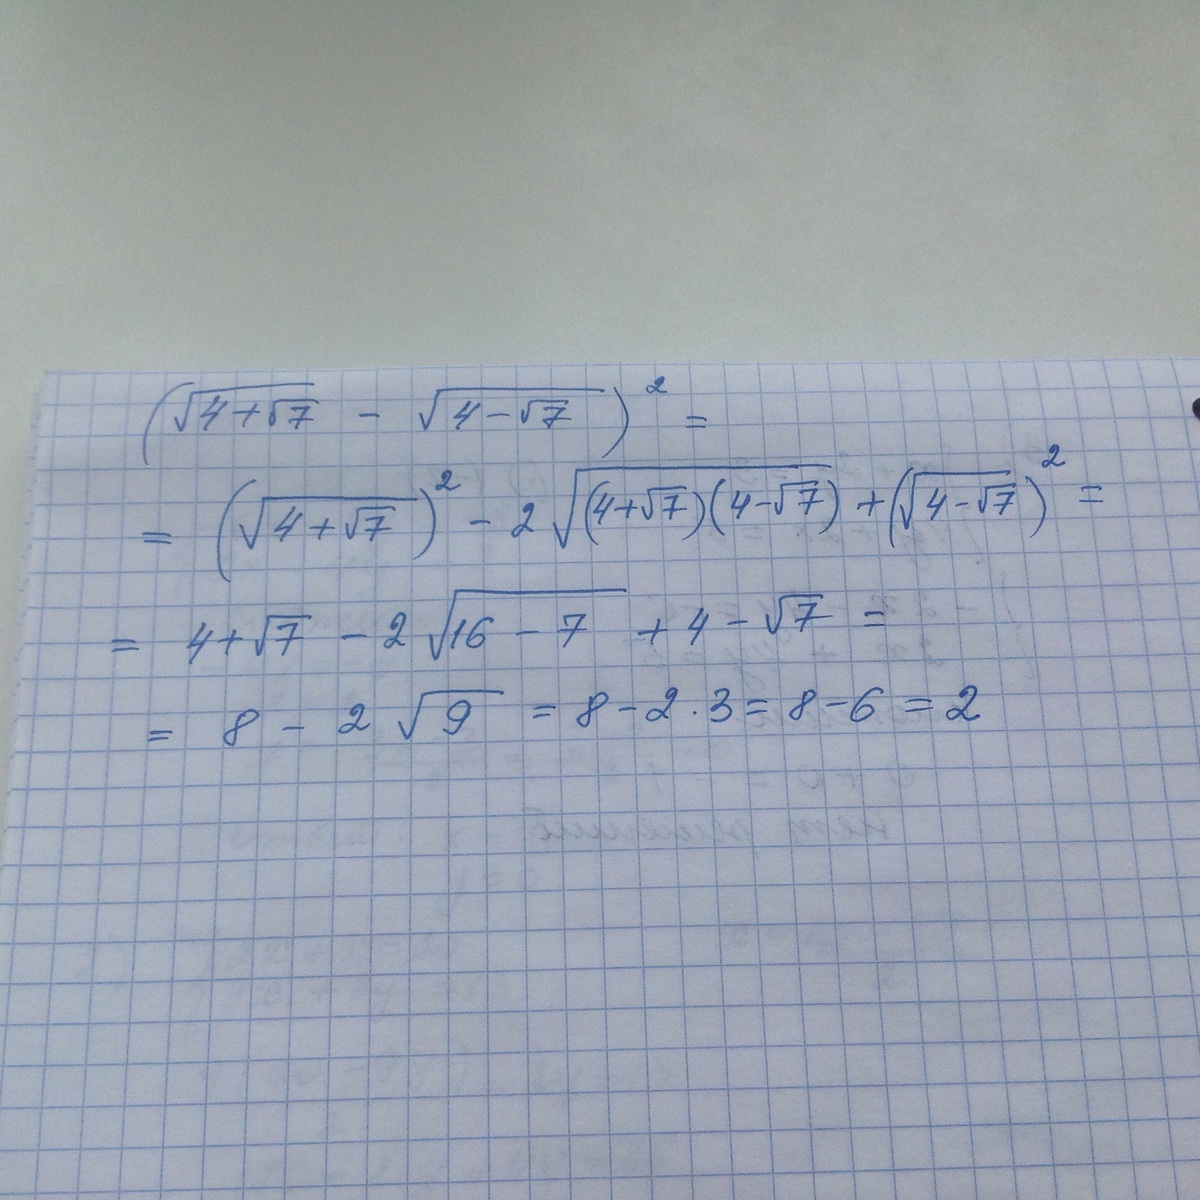 (√(4+√7) - √(4-√7))² =
= (√(4+√7))² - 2√((4+√7)(4-√7)) + (√(4-√7))² =
= 4+√7 - 2√(16-7) + 4-√7 =
= 8 - 2√9 = 8-2·3 = 8-6 = 2